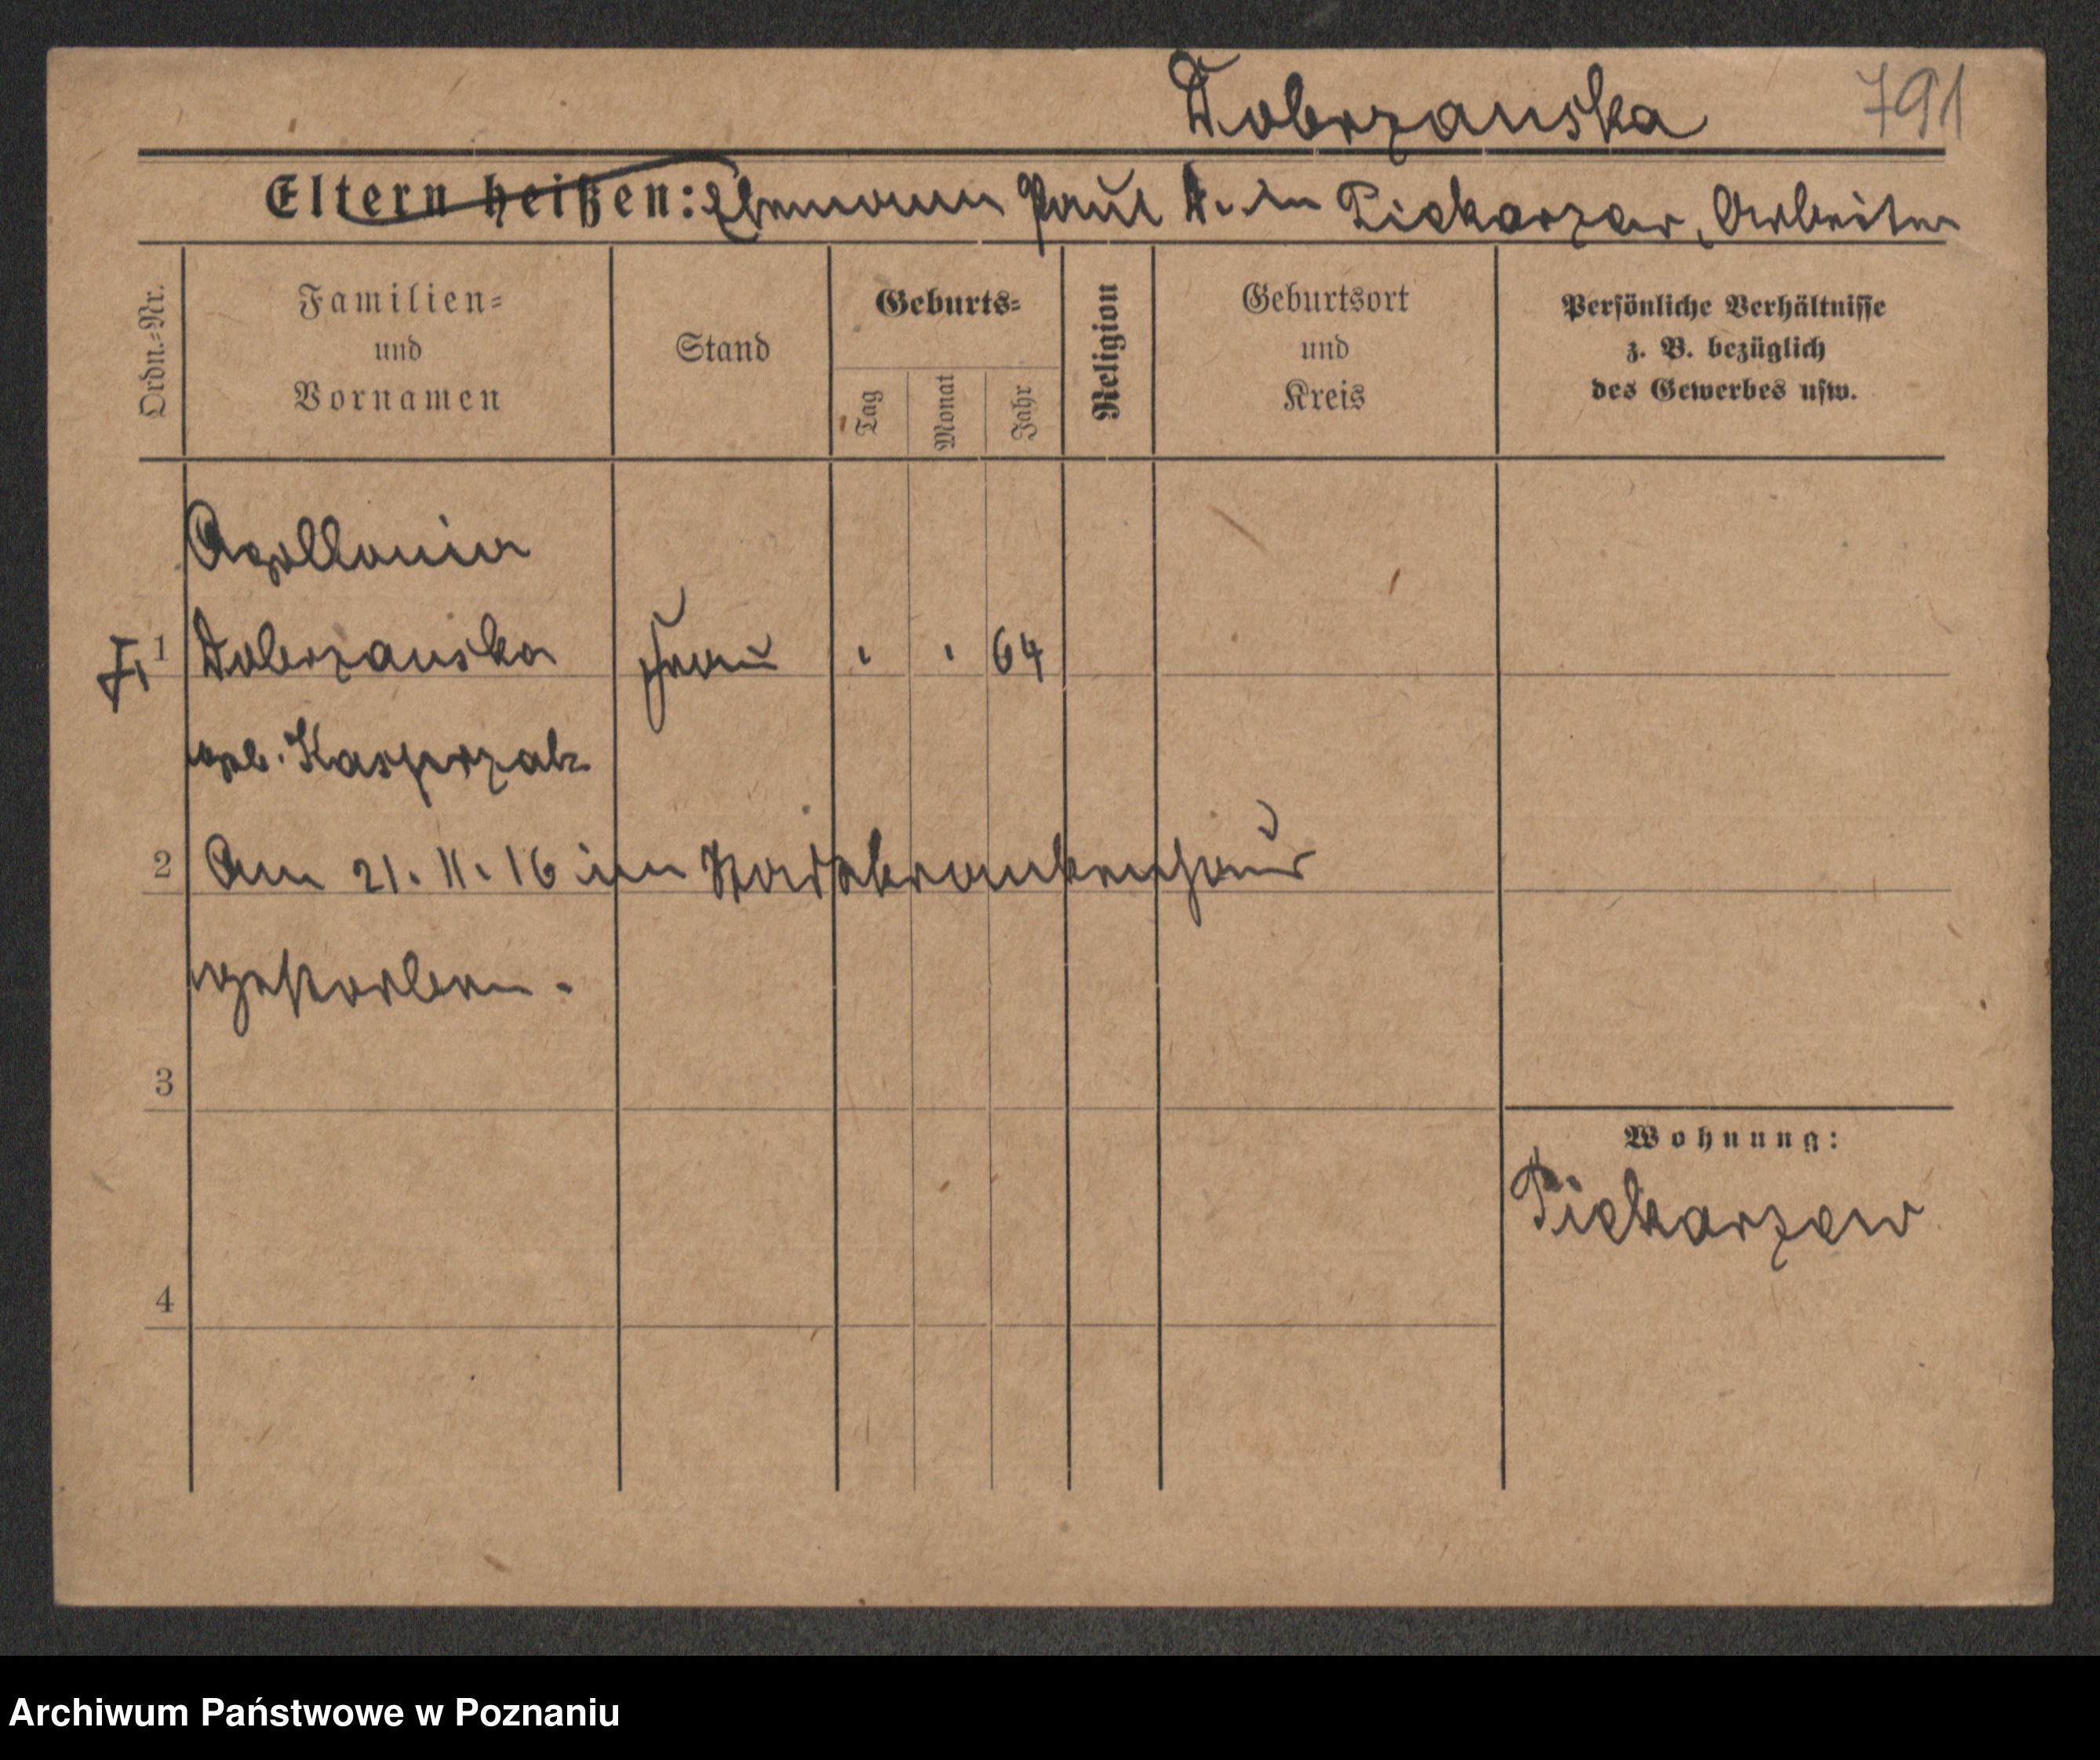 Dobrzanska 791
Eltern heißen: Ehemann Paul D. in Piekarzew, Arbeiter
Ordn.=Nr.
Familien=
und
Vornamen
Stand
Geburts=
Tag
Monat
Jahr
Religion
Geburtsort
und
Kreis
Persönliche Verhältnisse
z. B. bezüglich
des Gewerbes usw.
Apollonia
1 Dobrzanska Frau 64
geb. Kasprzak
2 Am 21. 11. 16 im Stadtkrankenhaus
gestorben.
3
Wohnung:
Piekarzew
4
Archiwum Państwowe w Poznaniu